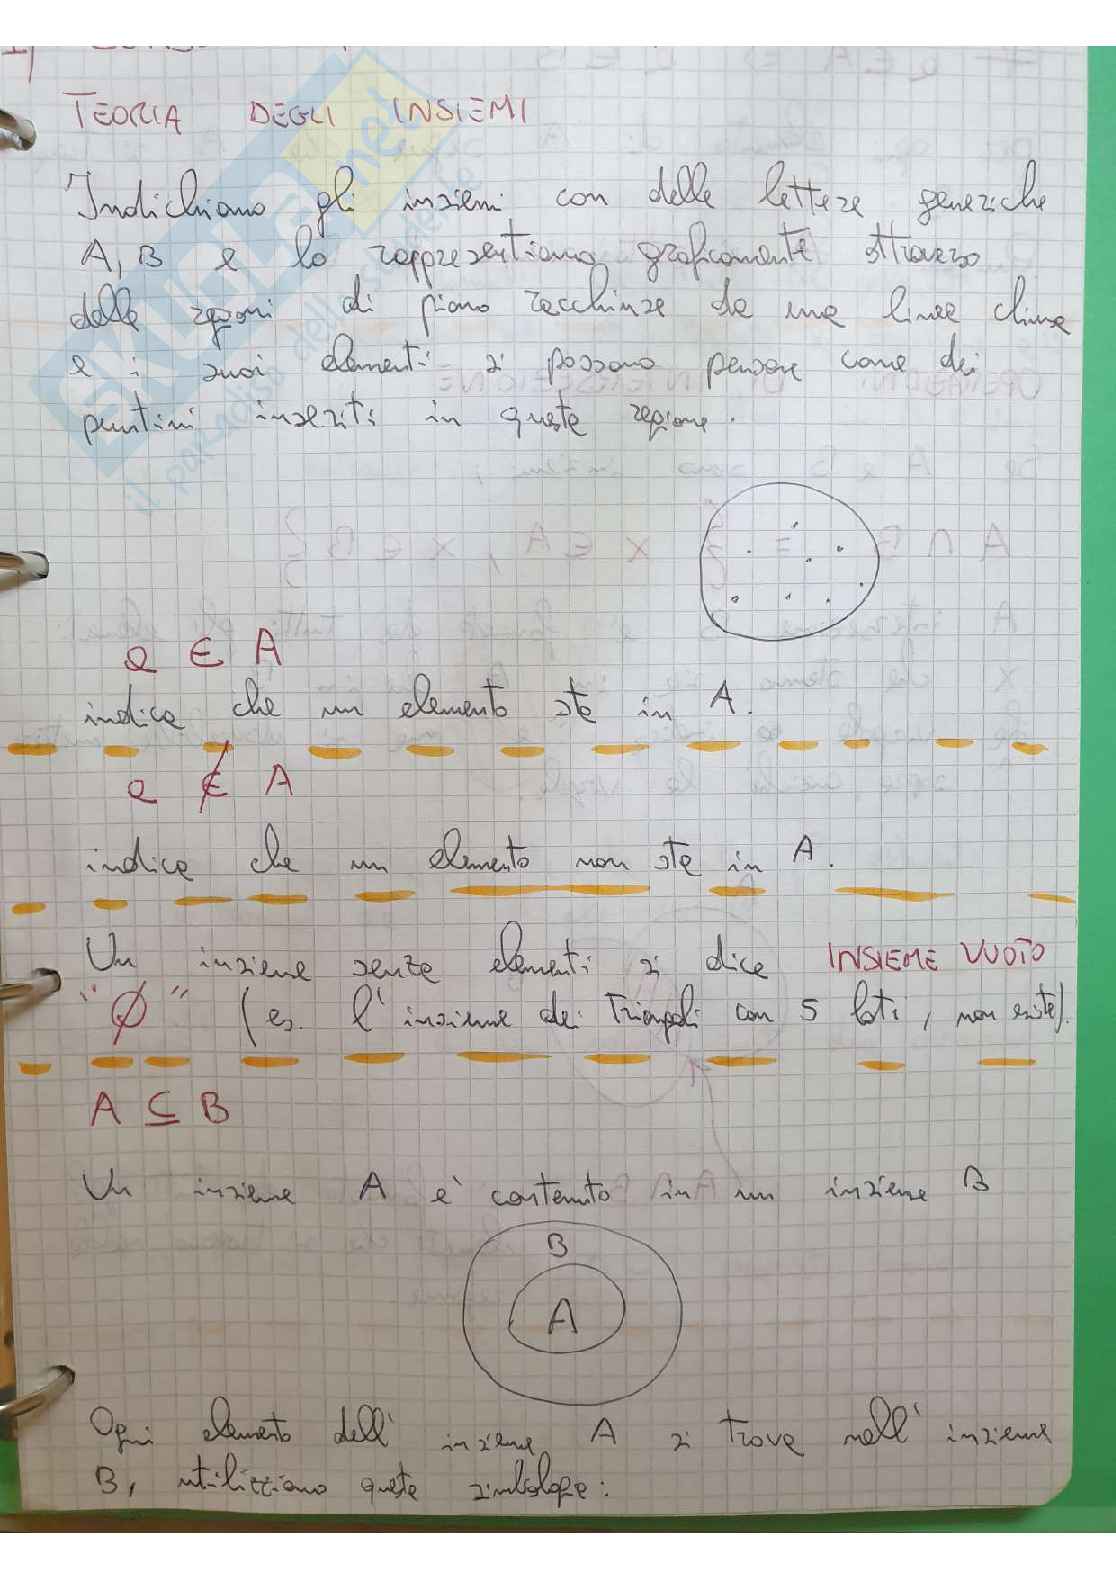 TEORIA DEGLI INSIEMI
Indichiamo gli insiemi con delle lettere generiche
A, B e lo rappresentiamo graficamente attraverso
delle regioni di piano racchiuse da una linea chiusa
e i suoi elementi si possono pensare come dei
puntini inseriti in questa regione.
a ∈ A
indica che un elemento sta in A.
a ∉ A
indica che un elemento non sta in A.
Un insieme senza elementi si dice INSIEME VUOTO
"∅" (es. l'insieme dei triangoli con 5 lati, non esiste).
A ⊆ B
Un insieme A è contenuto in un insieme B
B
A
Ogni elemento dell' insieme A si trova nell' insieme
B, utilizziamo questa simbologia:
SKUOLA.net
il paradiso dello studente